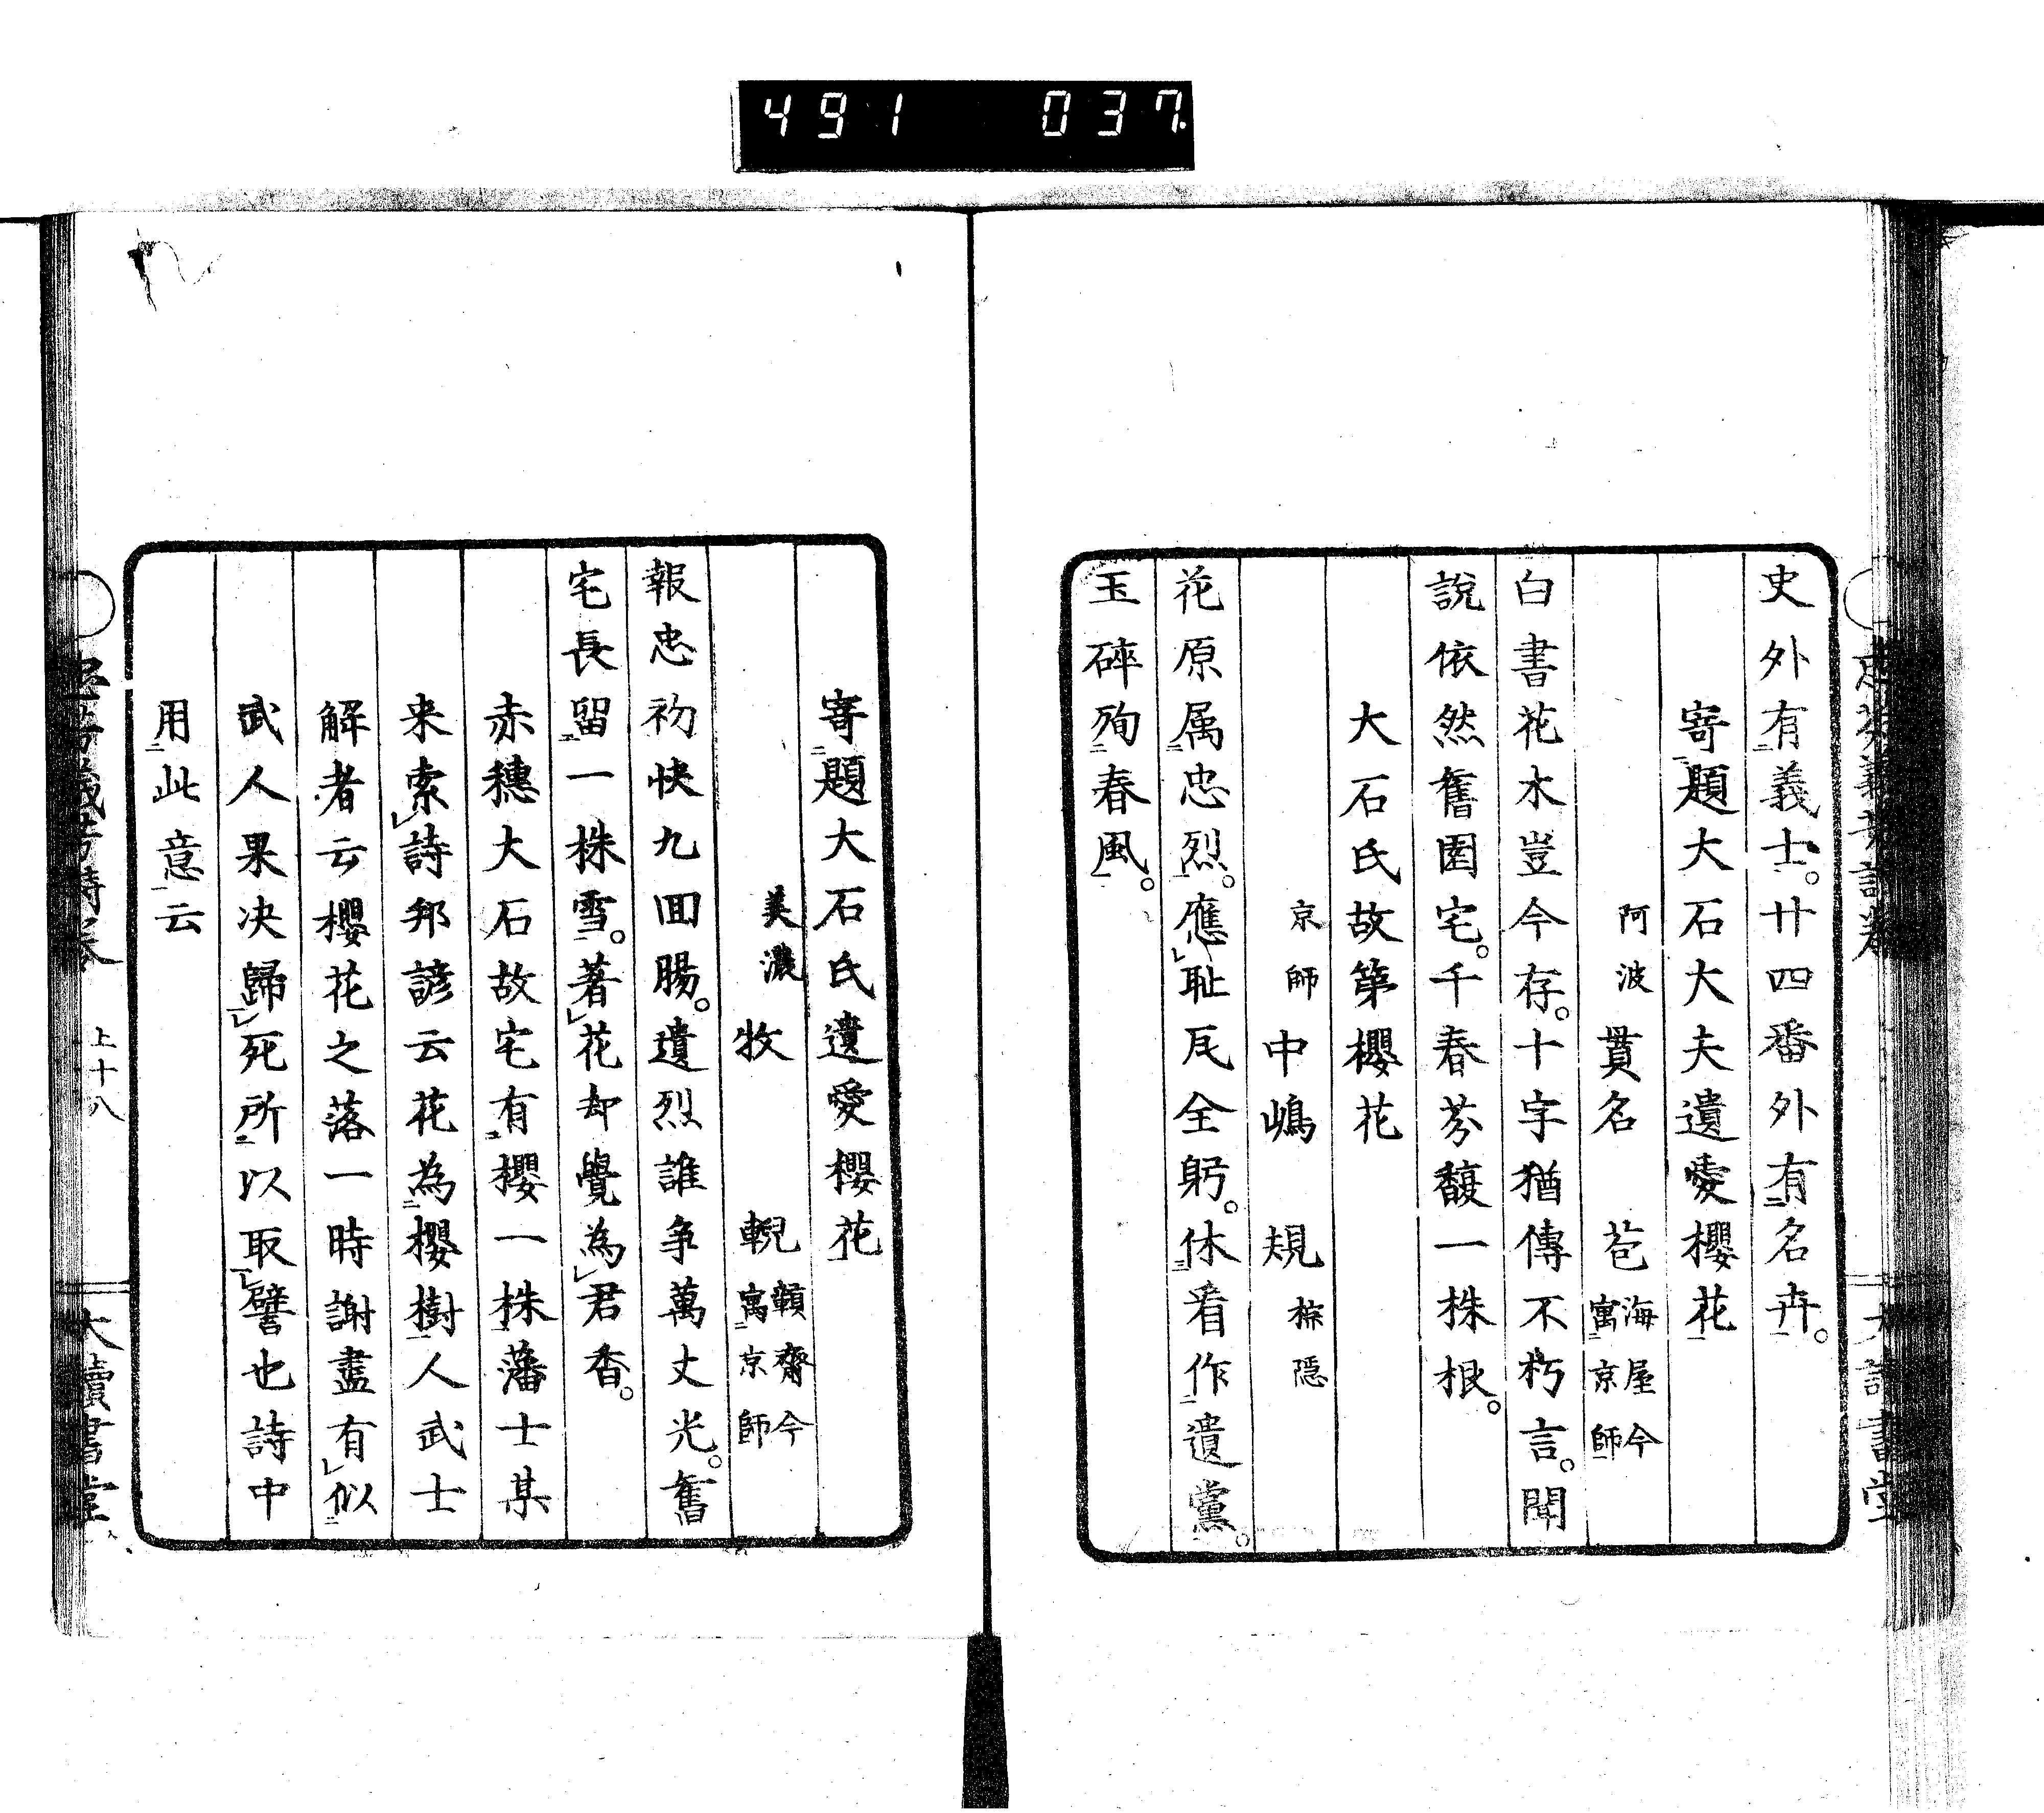 491 037
史外有義士廿四番外有名卉
寄題大石大夫遺愛櫻花
阿波 貫名 苞 海屋今寓京師
白書花木豈今存十字猶傳不朽言聞
說依然舊園宅千春芬馥一株根
大石氏故第櫻花
京師 中嶋 規 棕隱
花原属忠烈應恥瓦全躬休看作遺黨
玉碎殉春風
寄題大石氏遺愛櫻花
美濃 牧 輗 贛齋今寓京師
報忠初快九回腸遺烈誰争萬丈光舊
宅長留一株雪著花却覺為君香
赤穗大石故宅有櫻一株藩士某
来索詩邦諺云花為櫻樹人武士
解者云櫻花之落一時謝盡有似
武人果決歸死所以取譬也詩中
用此意云
上十八